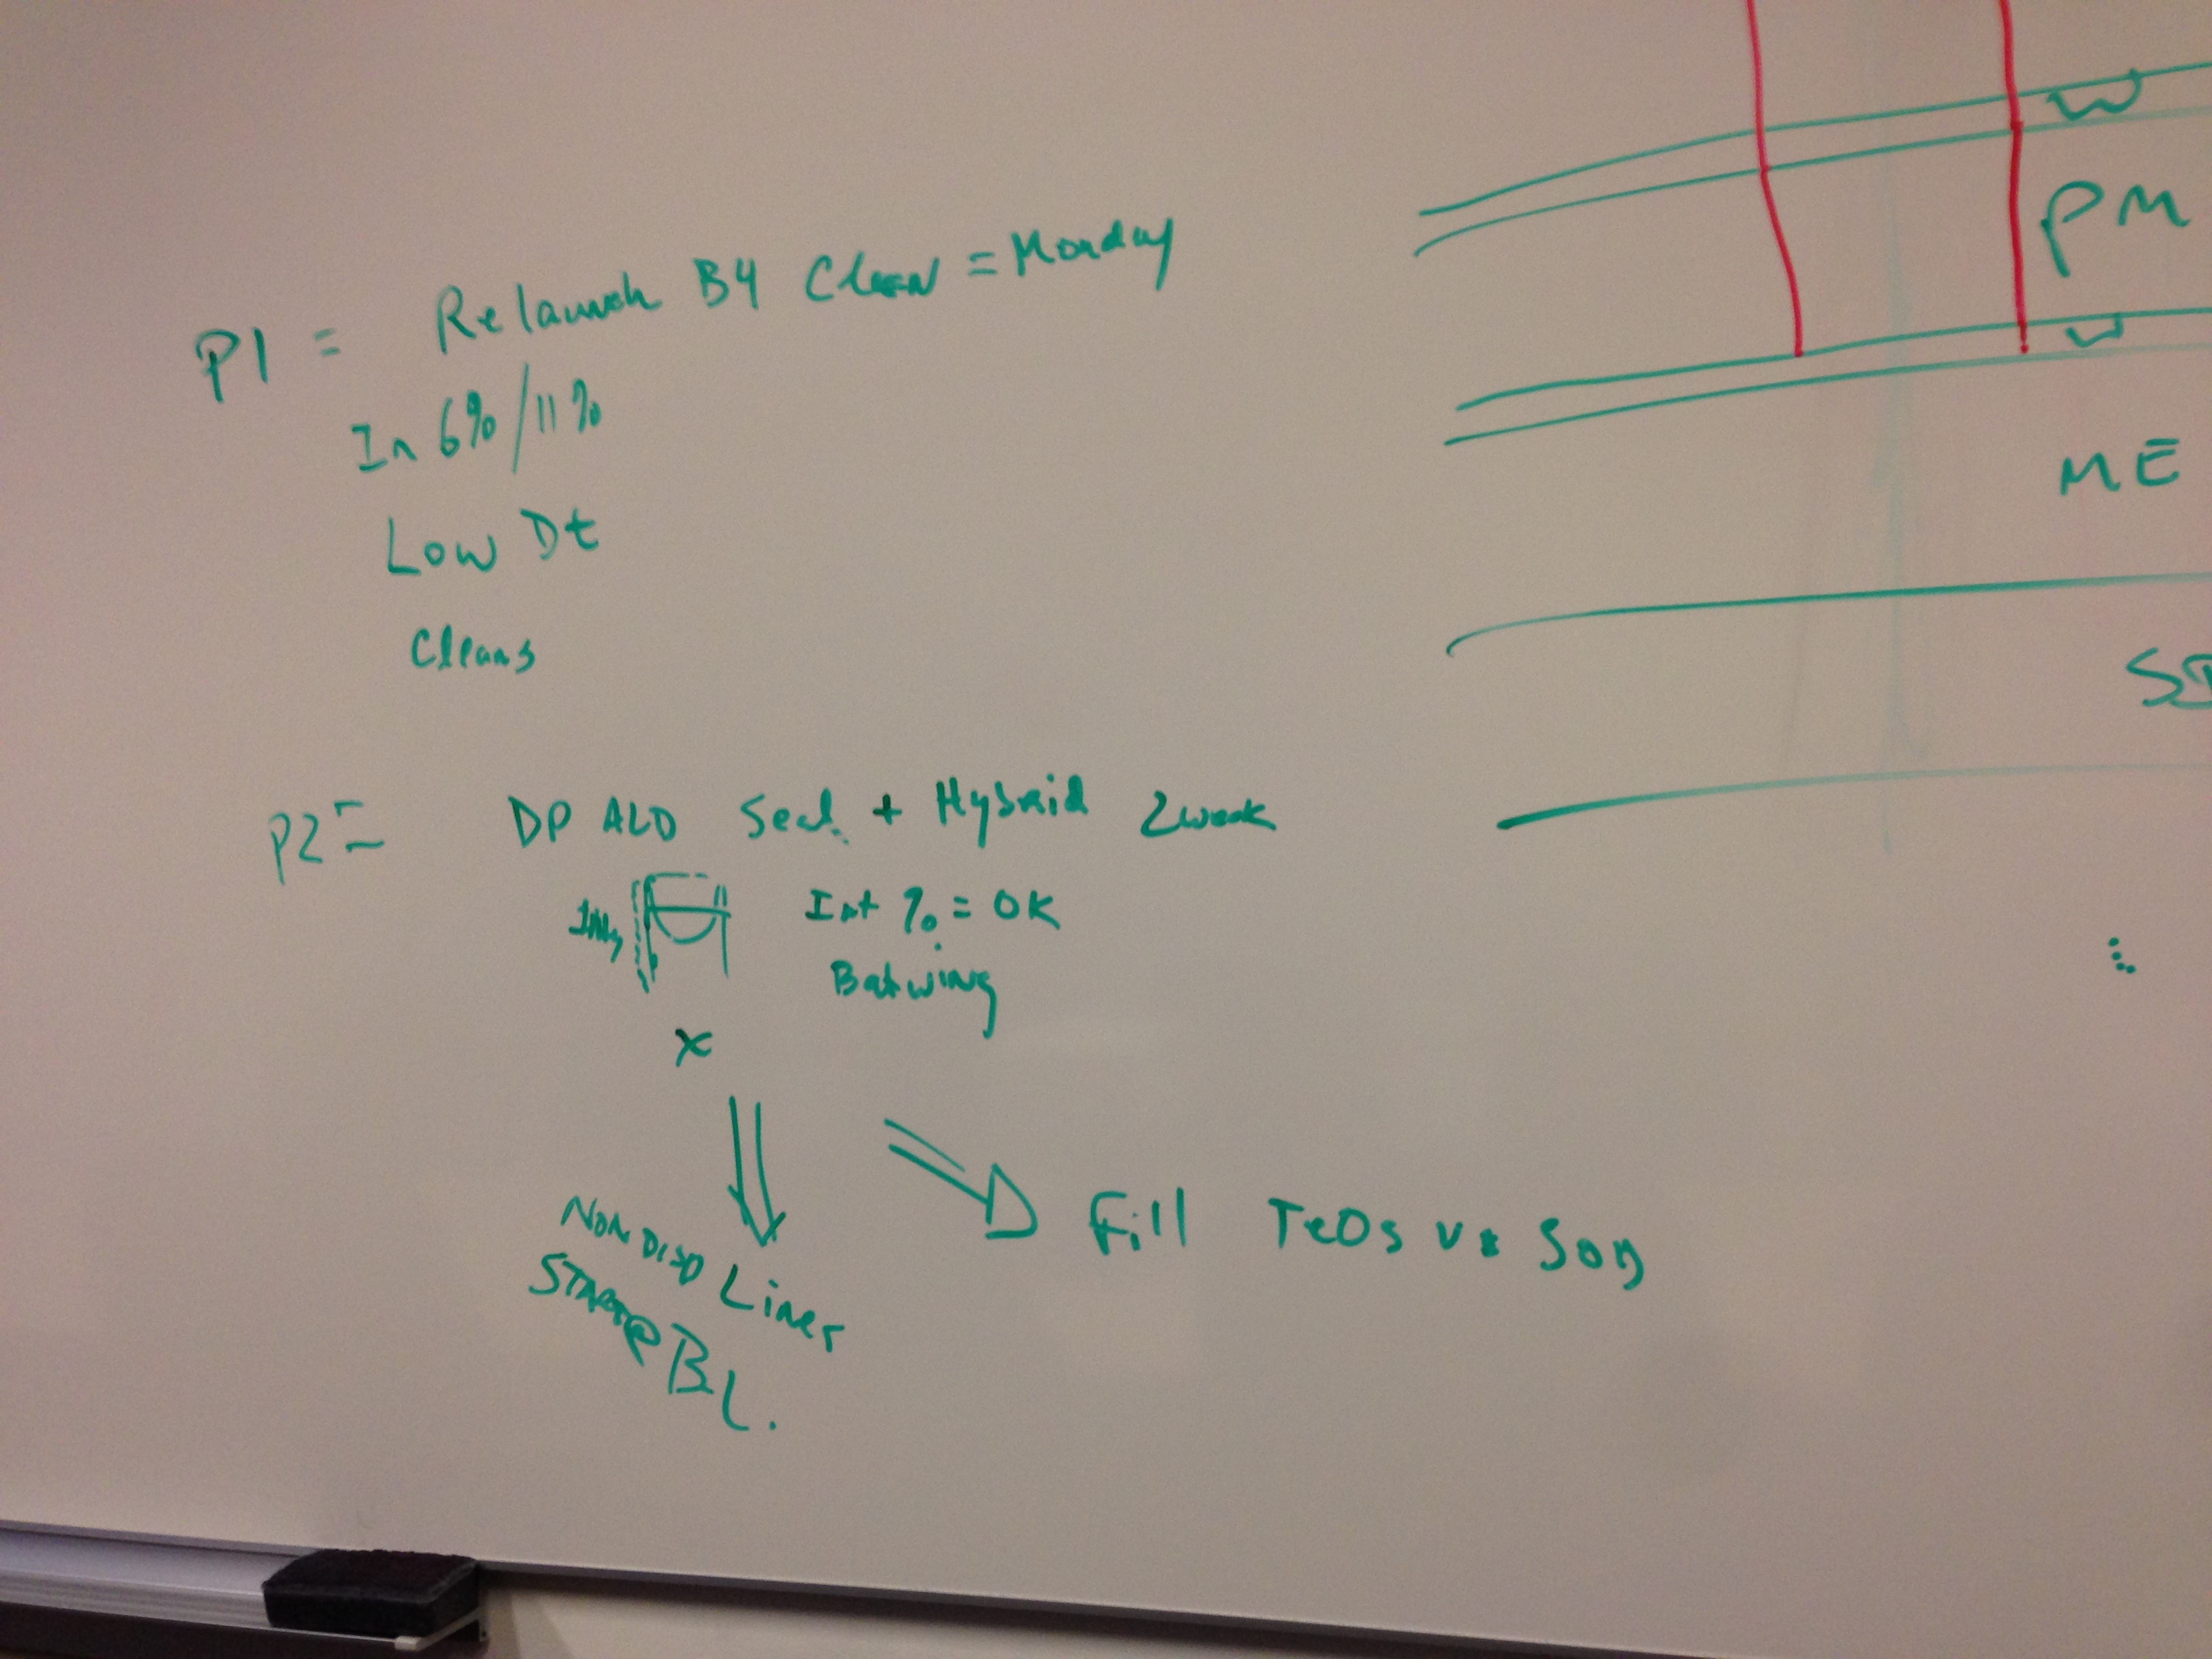 P1 = Relaunch B4 Clean = Monday
In 6% / 11%
Low Dt
Cleans
P2 = DP ALD Seal + Hybrid 2week
Int % = OK
Batwing
X
Fill TeOs vs SOD
Liner
START @ BL.
W
PM
W
ME